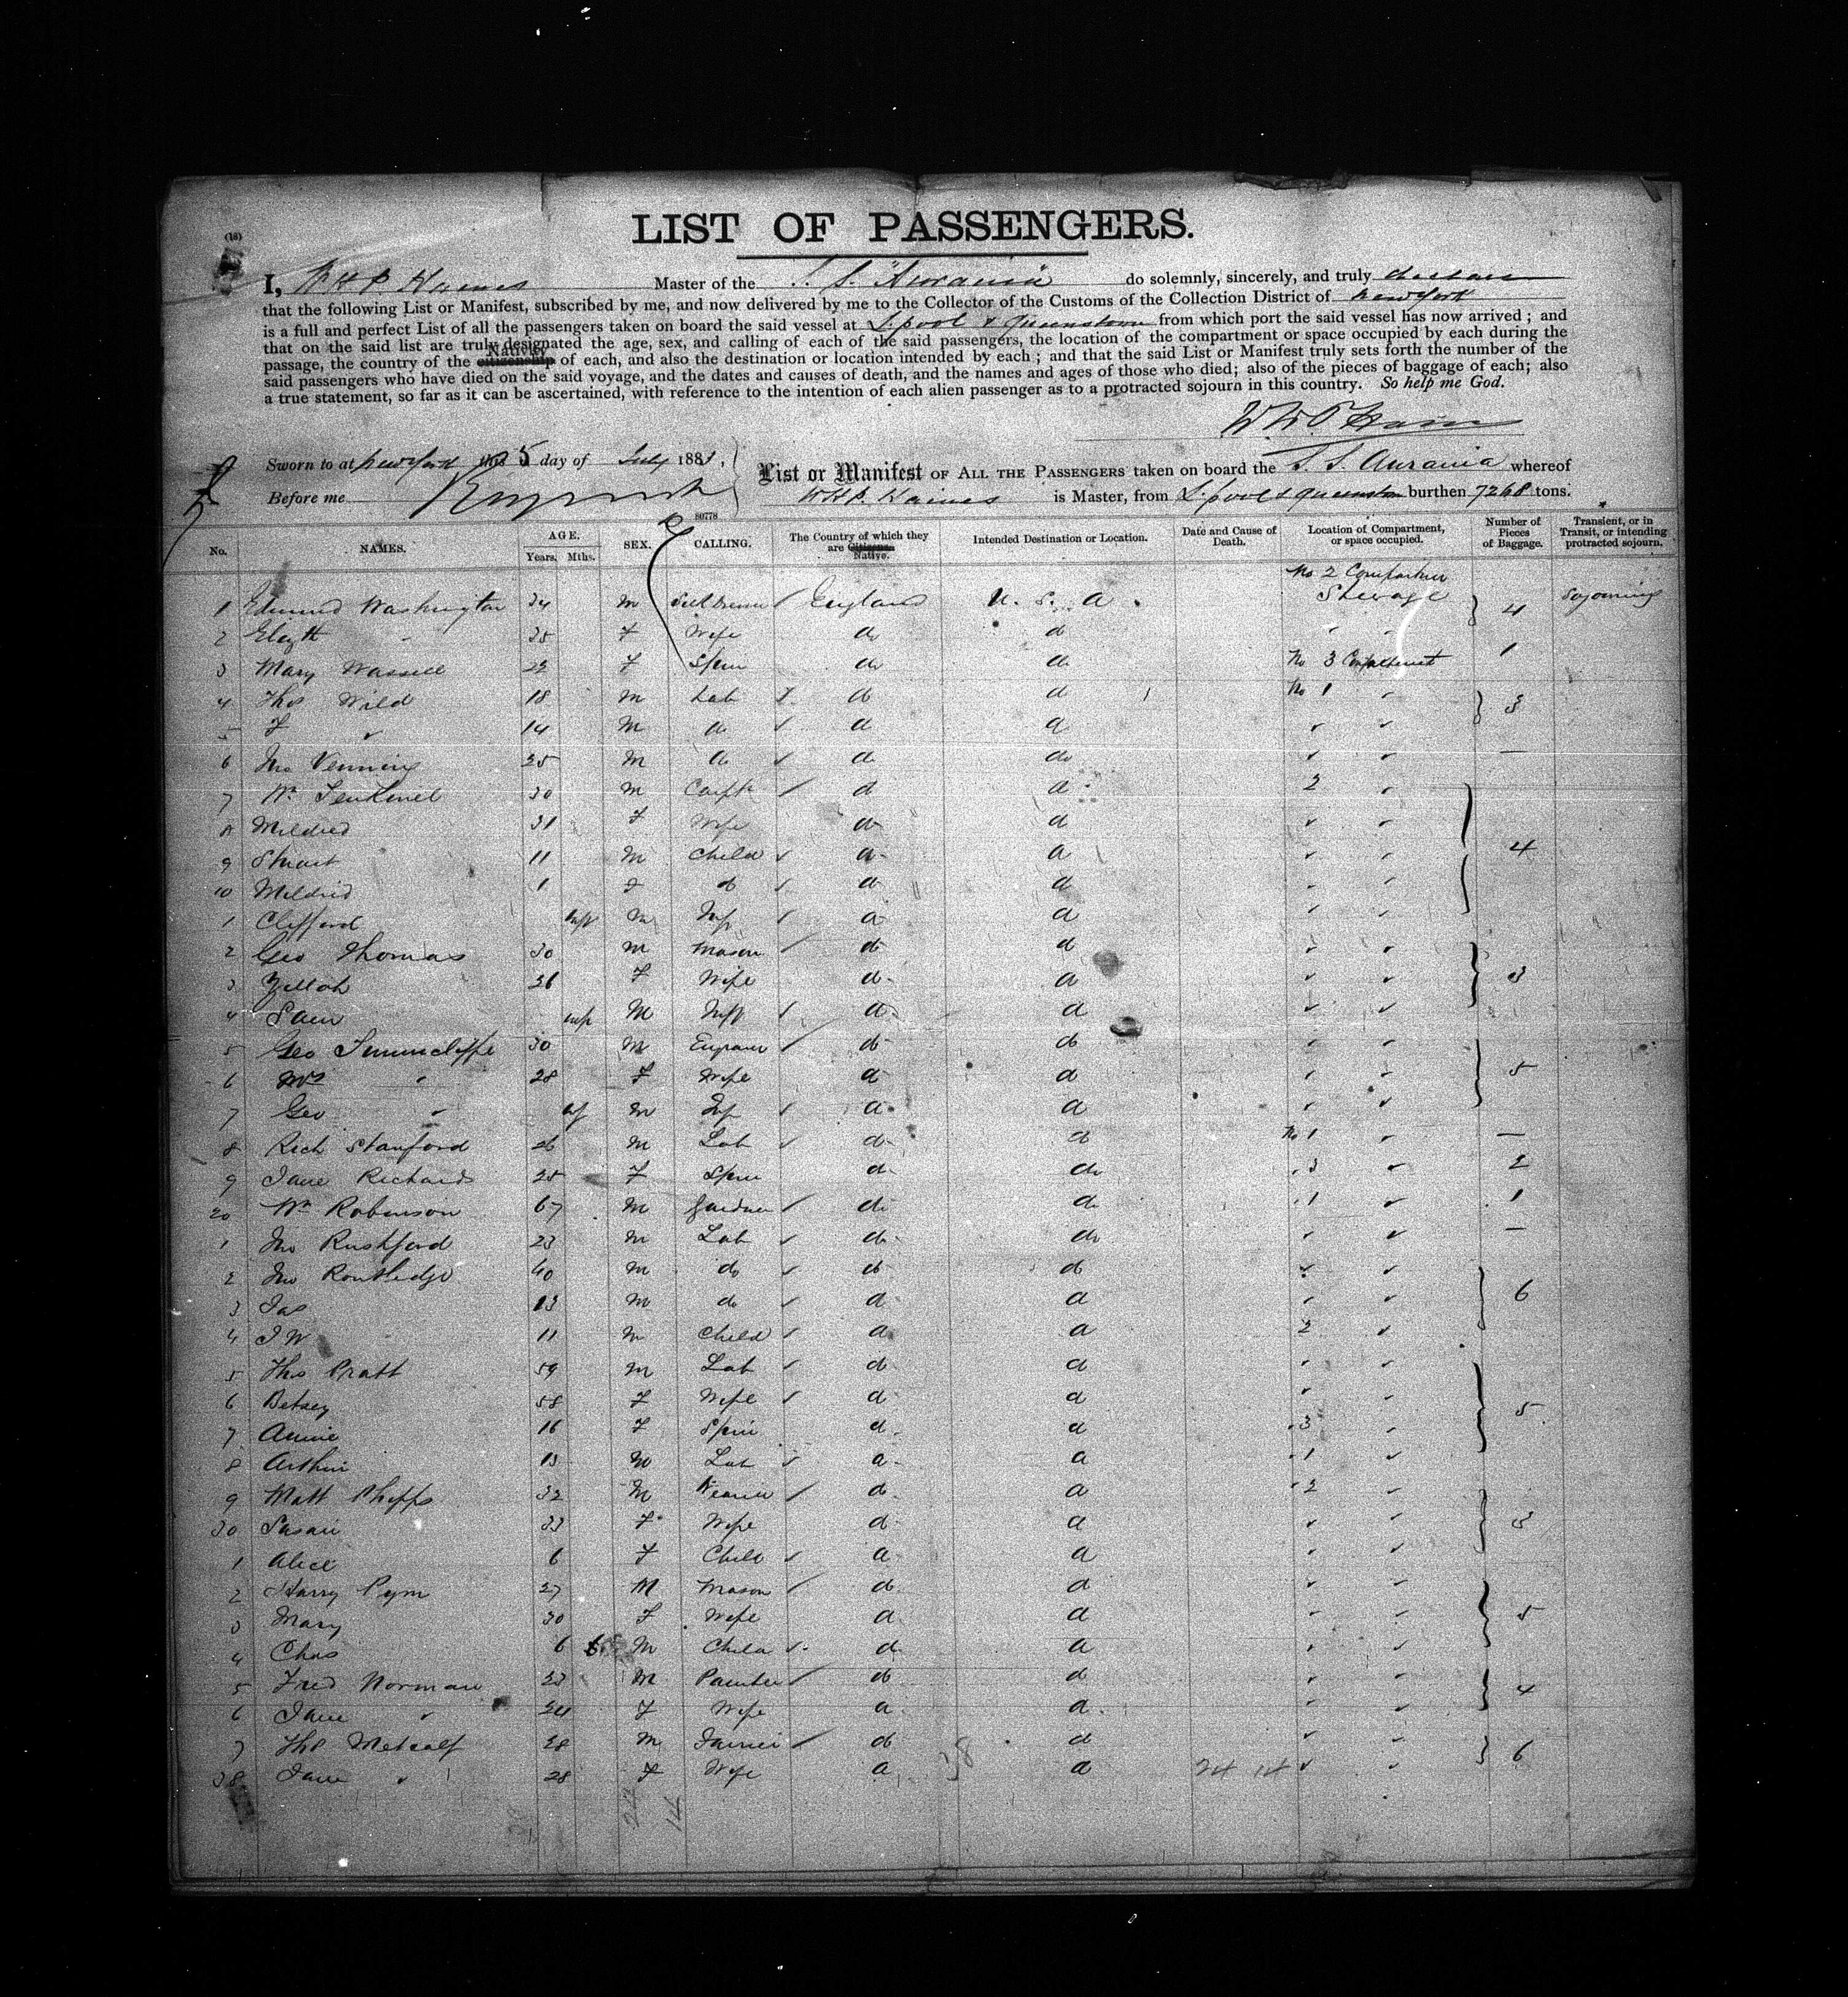 LIST OF PASSENGERS.
(16)
I, W H P Haines Master of the S. S. "Aurania" do solemnly, sincerely, and truly declare
that the following List or Manifest, subscribed by me, and now delivered by me to the Collector of the Customs of the Collection District of New York
is a full and perfect List of all the passengers taken on board the said vessel at L.pool & Queenstown from which port the said vessel has now arrived; and
that on the said list are truly designated the age, sex, and calling of each of the said passengers, the location of the compartment or space occupied by each during the
passage, the country of the citizenship Nativity of each, and also the destination or location intended by each; and that the said List or Manifest truly sets forth the number of the
said passengers who have died on the said voyage, and the dates and causes of death, and the names and ages of those who died; also of the pieces of baggage of each; also
a true statement, so far as it can be ascertained, with reference to the intention of each alien passenger as to a protracted sojourn in this country. So help me God.
Sworn to at New York this 5 day of July 188
Before me
List or Manifest OF ALL THE PASSENGERS taken on board the S. S. Aurania whereof
W H P. Haines is Master, from L.pool & Queenston burthen 7268 tons.
80778
No. NAMES. AGE. Years. Mths. SEX. CALLING. The Country of which they are Citizens. Native. Intended Destination or Location. Date and Cause of Death. Location of Compartment, or space occupied. Number of Pieces of Baggage. Transient, or in Transit, or intending protracted sojourn.
No 2 Compartmen
1 Edmund Washington 34 M England U. S. A. Steerage 4 Sojourning
2 Elizth 35 F Wife do do
3 Mary Wassell 22 F Spin do do No 3 Compartment 1
4 Thos Wild 18 M Lab do do No 1 3
5 F 14 M do do do
6 Jno Venning 25 M do do do —
7 Wm 30 M Carptr do do 2
8 Mildred 31 F Wife do do
9 Stuart 11 M Child do do 4
10 Mildrid 1 F do do do
1 Clifford inft M Inf do do
2 Geo Thomas 30 M Mason do do
3 Zillah 36 F Wife do do 3
4 Sam inf M Inft do do
5 Geo 30 M do do
6 Mrs 28 F Wife do do 5
7 Geo inf M Inf do do
8 Rich Stanford 26 M Lab do do No 1 —
9 Jane Richards 25 F Spin do do 3 2
20 Wm Robinson 67 M Gardner do do 1 1
1 Jno Rushford 23 M Lab do do —
2 Jno Routledge 40 M do do do
3 Jas 13 M do do do 6
4 J W 11 M Child do do 2
5 Thos Pratt 59 M Lab do do
6 Betsey 58 F Wife do do 5
7 Annie 16 F Spin do do 3
8 Arthur 13 M Lab do do 1
9 Matt Phipps 32 M Weaver do do 2
30 Susan 33 F Wife do do 3
1 Alice 6 F Child do do
2 Harry Pym 27 M Mason do do
3 Mary 30 F Wife do do 5
4 Chas 6 M Child do do
5 Fred Norman 23 M Painter do do 4
6 Jane 24 F Wife do do
7 Thos Metcalf 28 M do do 6
38 Jane 28 F Wife do do
38 24 14
24 14